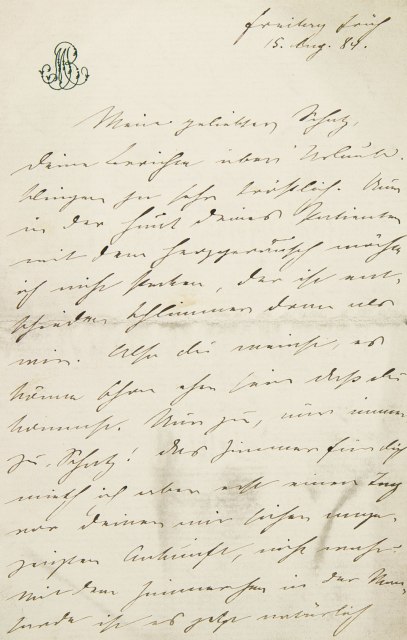 Freitag früh
15. Aug. 84.
Mein geliebter Schatz,
deine Berichte über Urlaub
klingen ja sehr tröstlich. Nun
in der Haut deines Patienten
mit dem Herzgeräusch möchte
ich nicht stecken, der ist ent-
schieden schlimmer dran als
wir. Also du meinst, es
könne schon eher sein daß du
kommst. Nur zu, nur immer
zu, Schatz! Das Zimmer für dich
mieth ich aber erst einen Tag
vor deiner mir sicher ange-
zeigten Ankunft, nicht wahr?
Mit dem Zimmerchen in der
ist es jetzt natürlich